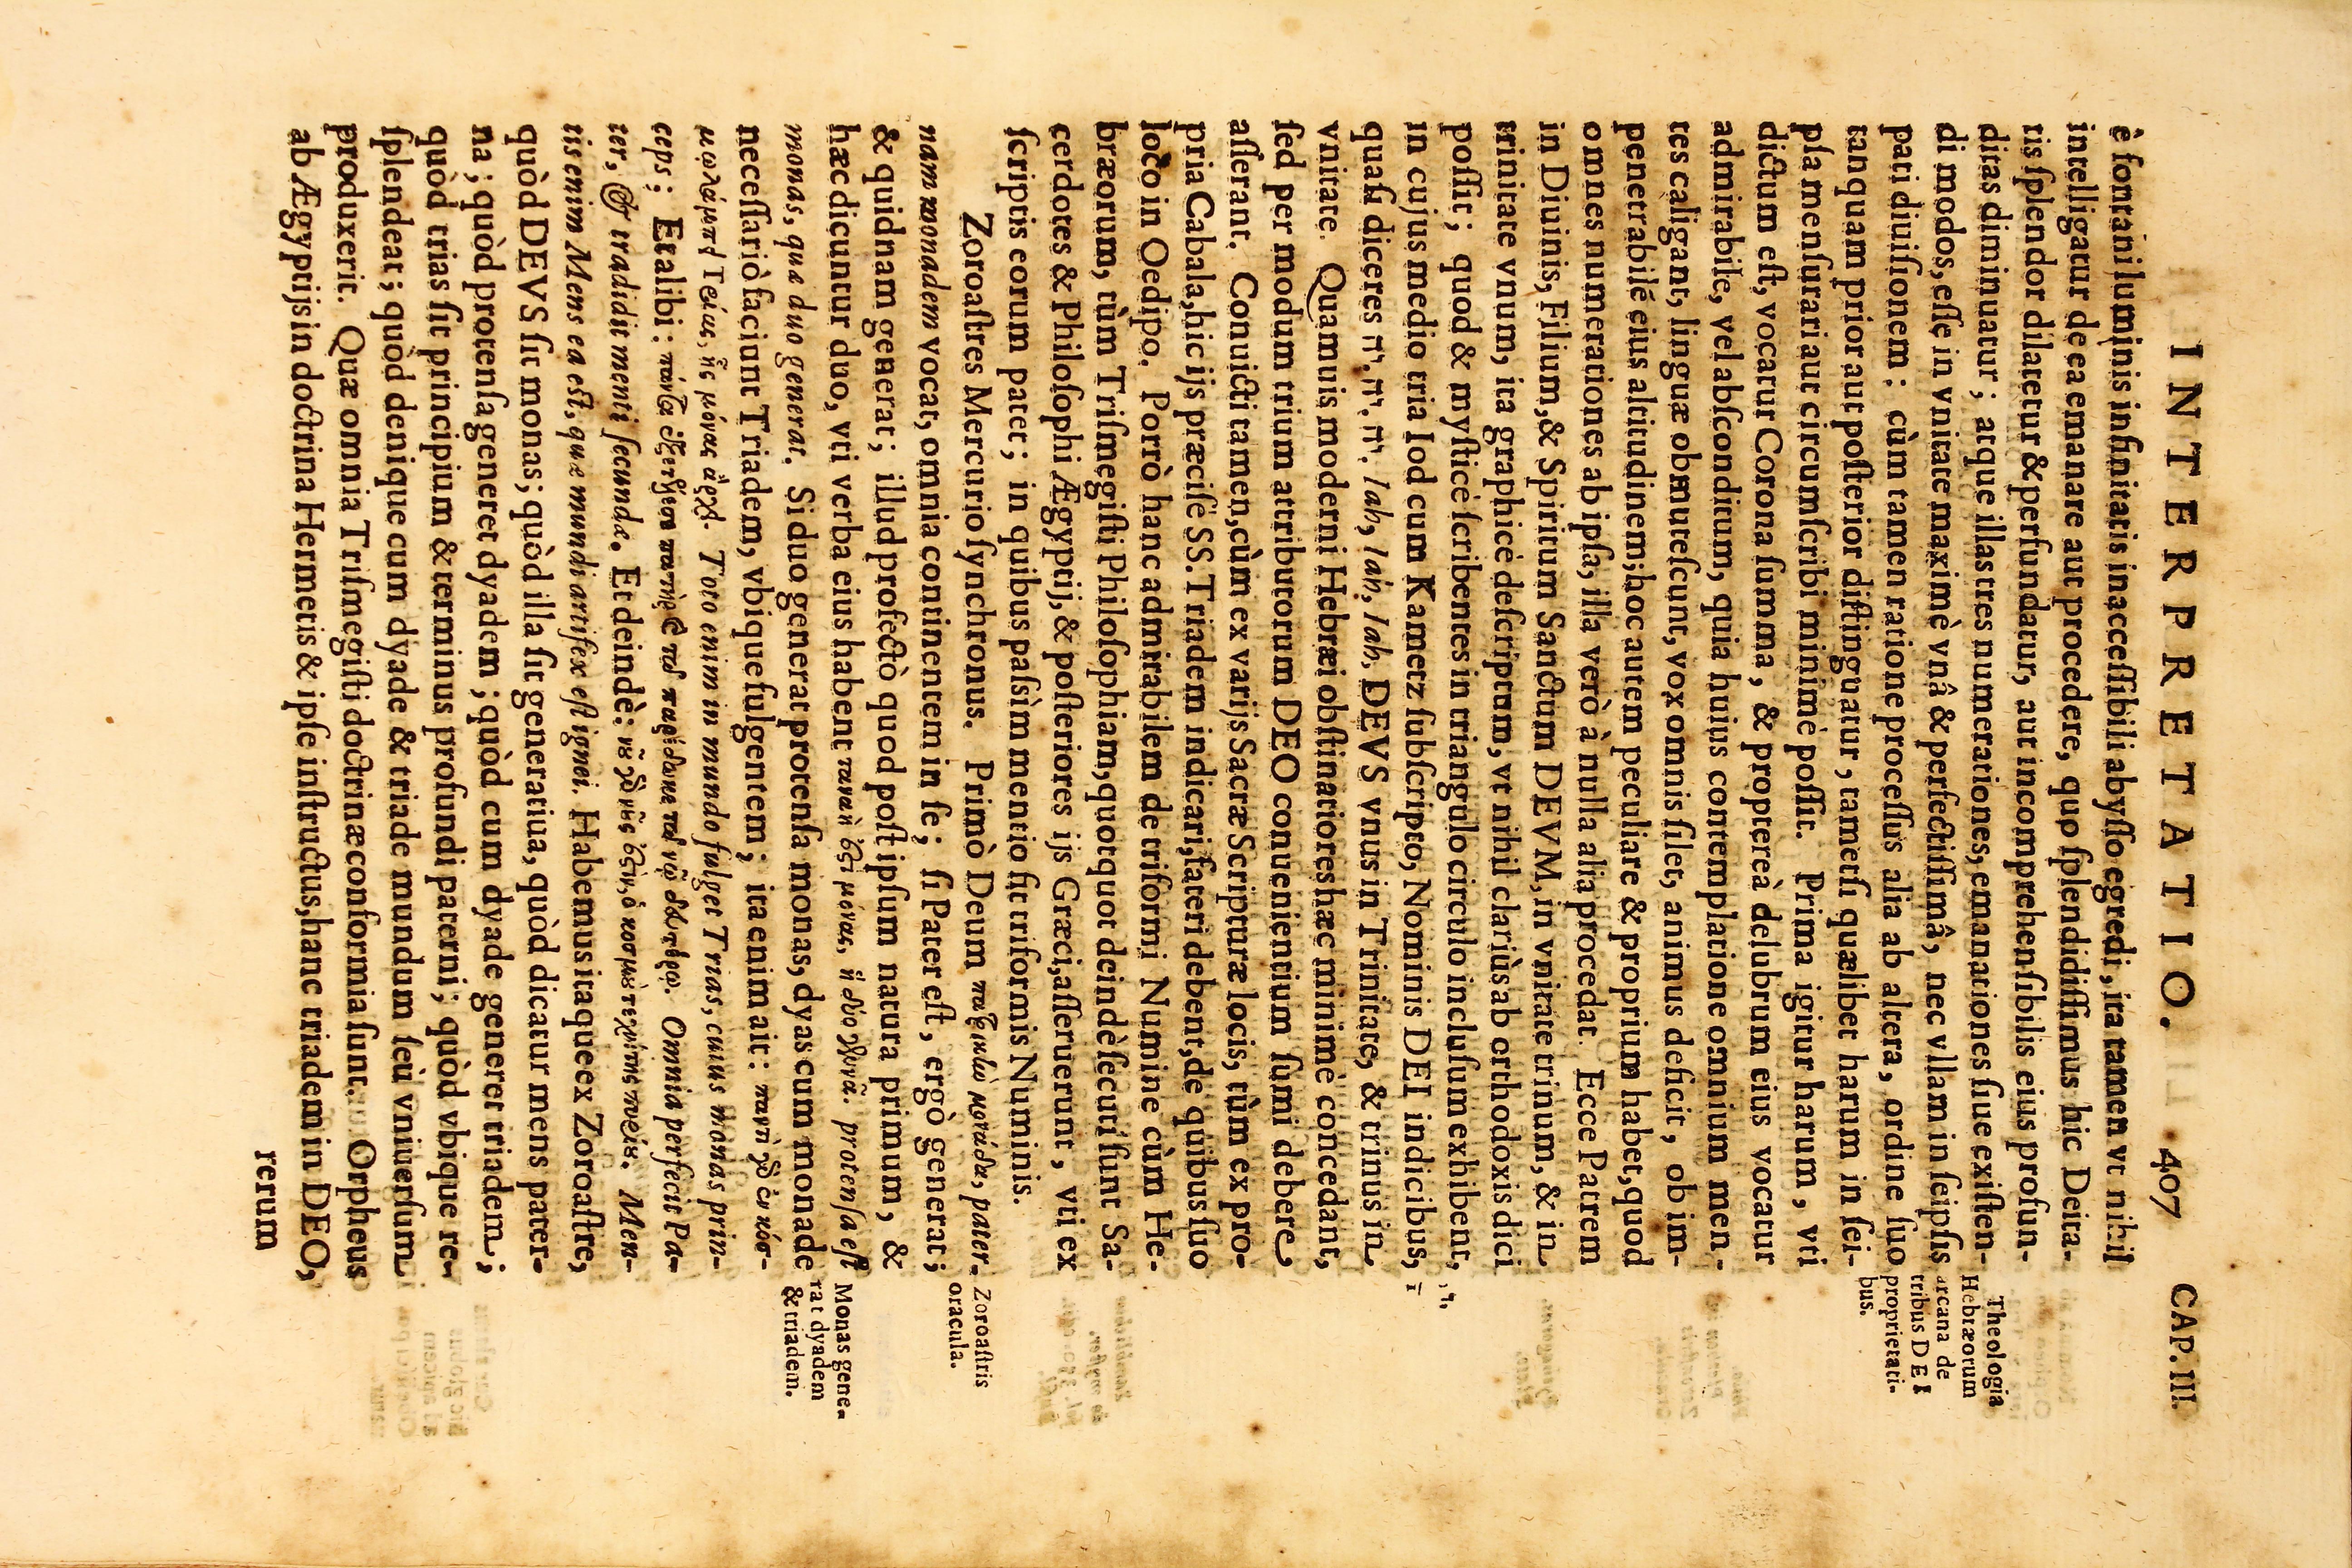 INTERPRETATIO. 407 CAP. III.
è fontani luminis infinitatis inaccessibili abysso egredi, ita tamen vt nihil
intelligatur de ea emanare aut procedere, quo splendidissimus hic Deita-
tis splendor dilatetur & perfundatur, aut incomprehensibilis eius profun-
ditas diminuatur; atque illas tres numerationes, emanationes siue existen-
di modos, esse in vnitate maximè vnâ & perfectissimâ, nec vllam in seipsis
pati diuisionem: cùm tamen ratione processus alia ab altera, ordine suo
tanquam prior aut posterior distinguatur, tametsi quælibet harum in sei-
psa mensurari aut circumscribi minimè possit. Prima igitur harum, vti
dictum est, vocatur Corona summa, & proptereà delubrum eius vocatur
admirabile, vel absconditum, quia huius contemplatione omnium men-
tes caligant, linguæ obmutescunt, vox omnis silet, animus deficit, ob im-
penetrabilé eius altitudinem; hoc autem peculiare & proprium habet, quod
omnes numerationes ab ipsa, illa verò à nulla alia procedat. Ecce Patrem
in Diuinis, Filium, & Spiritum Sanctum DEVM, in vnitate trinum, & in
trinitate vnum, ita graphicè descriptum, vt nihil clariùs ab orthodoxis dici
possit; quod & mysticè scribentes in triangulo circulo inclusum exhibent,
in cujus medio tria Iod cum Kametz subscripto, Nominis DEI indicibus,
quasi diceres יה. יה. יה. Iah, Iah, Iah, DEVS vnus in Trinitate, & trinus in
vnitate. Quamuis moderni Hebræi obstinatiores hæc minimè concedant,
sed per modum trium attributorum DEO conuenientium sumi debere
asserant. Conuicti tamen, cùm ex varijs Sacræ Scripturæ locis, tùm ex pro-
pria Cabala, hic ijs præcise SS. Triadem indicari, fateri debent, de quibus suo
loco in Oedipo. Porrò hanc admirabilem de triformi Numine cùm He-
bræorum, tùm Trismegisti Philosophiam, quotquot deindè secuti sunt Sa-
cerdotes & Philosophi Ægyptij, & posteriores ijs Græci, asseruerunt, vti ex
scriptis eorum patet; in quibus passim mentio fit triformis Numinis.
Zoroastres Mercurio synchronus. Primò Deum πατρικὴν μονάδα, pater-
nam monadem vocat, omnia continentem in se; si Pater est, ergò generat;
& quidnam generat; illud profectò quod post ipsum natura primum, &
hæc dicuntur duo, vti verba eius habent ταναὴ ἐστὶ μόνας, ἣ δύο γεννᾷ. protensa est
monas, qua duo generat. Si duo generat protensa monas, dyas cum monade
necessariò faciunt Triadem, vbique fulgentem; ita enim ait: παντὶ γὰρ ἐν κόσ-
μῳ λάμπει Τριάς, ἧς μόνας ἄρχει. Toto enim in mundo fulget Trias, cuius monas prin-
ceps; Et alibi: πάντα ἐξετέλεσε πατὴρ καὶ νῷ παρέδωκε δευτέρῳ. Omnia perfecit Pa-
ter, & tradidit menti secundæ. Et deindè: νοῦ γὰρ νοῦς ἐστιν, ὁ κόσμου τεχνίτης πυρίου. Men-
tis enim Mens ea est, quæ mundi artifex est ignei. Habemus itaque ex Zoroastre,
quòd DEVS sit monas; quòd illa sit generatiua, quòd dicatur mens pater-
na; quòd protensa generet dyadem; quòd cum dyade generet triadem;
quòd trias sit principium & terminus profundi paterni; quòd vbique re-
splendeat; quòd denique cum dyade & triade mundum seù vniuersum
produxerit. Quæ omnia Trismegisti doctrinæ conformia sunt. Orpheus
ab Ægyptijs in doctrina Hermetis & ipse instructus, hanc triadem in DEO,
rerum
Theologia
Hebræorum
arcana de
tribus DEI
proprietati-
bus.
Zoroastris
oracula.
Monas gene-
rat dyadem
& triadem.